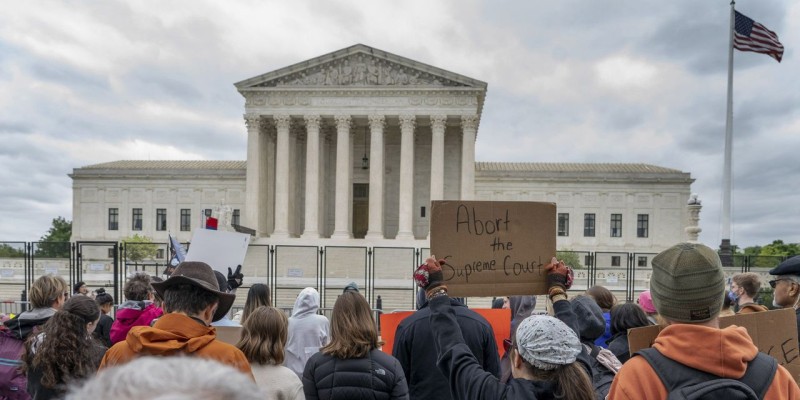 Abort
the
Supreme Court